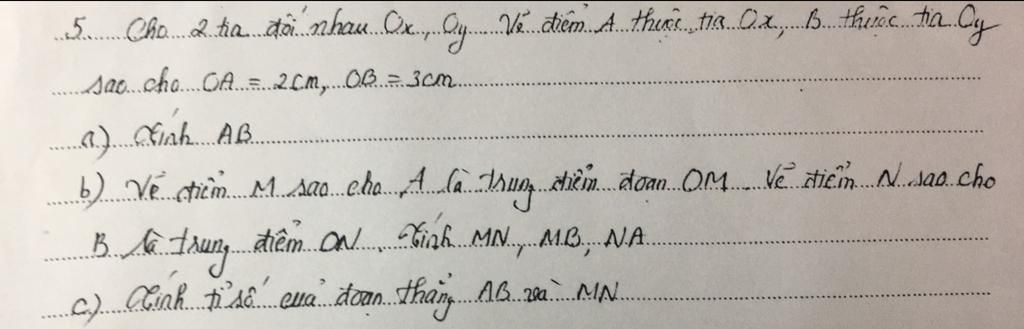 5. Cho 2 tia đối nhau Ox, Oy Vẽ điểm A thuộc tia Ox, B thuộc tia Oy
sao cho OA = 2cm, OB = 3cm
a.) Tính AB
b) Vẽ điểm M sao cho A là trung điểm đoạn OM. Vẽ điểm N sao cho
B là trung điểm ON. Tính MN, MB, NA
c.) Tính tỉ số của đoạn thẳng AB và MN